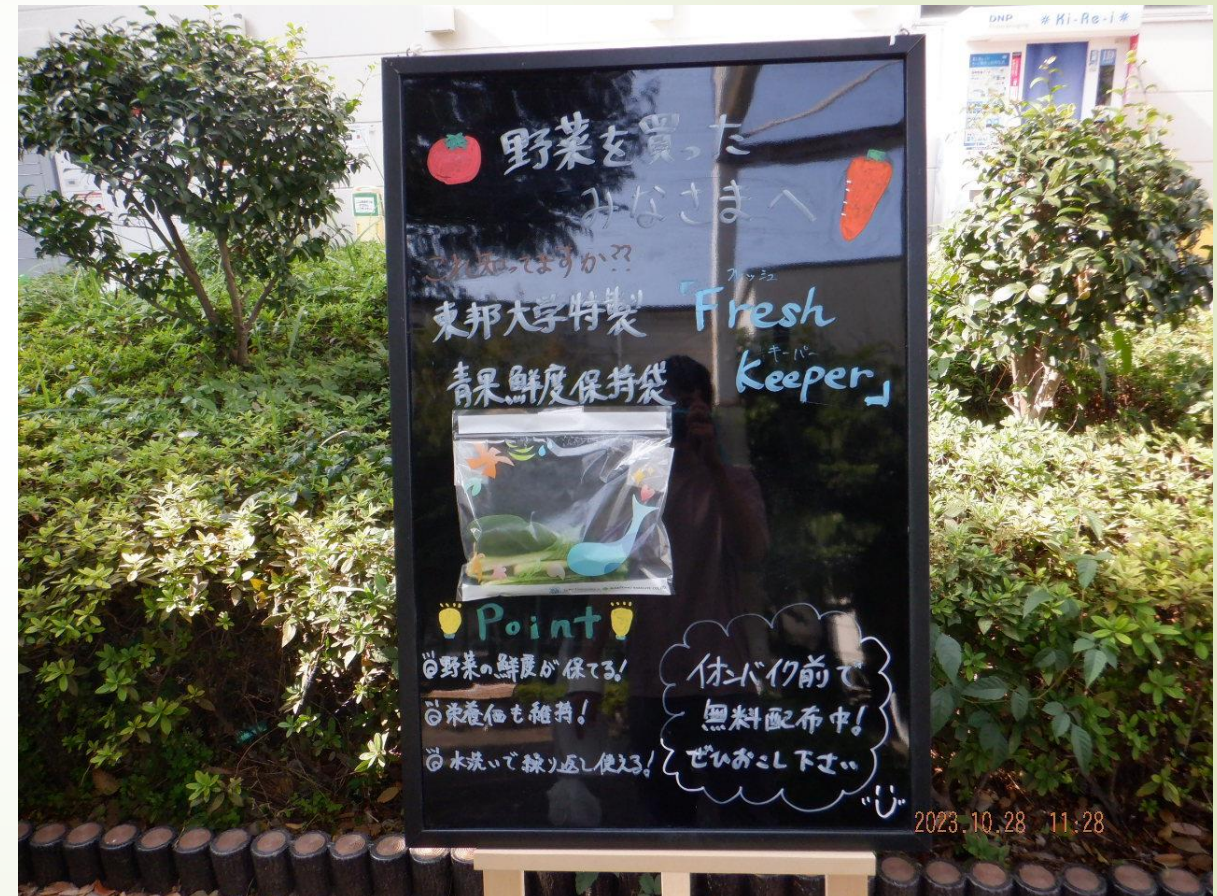 DNP #Ki-Re-i#
野菜を買った
みなさまへ
これ知ってますか??
東邦大学特製
青果鮮度保持袋
フレッシュ
「Fresh
キーパー
Keeper」
Point
野菜の鮮度が保てる!
栄養価も維持!
水洗いで繰り返し使える!
イオンバイク前で
無料配布中!
ぜひおこし下さい
2023.10.28 11:28